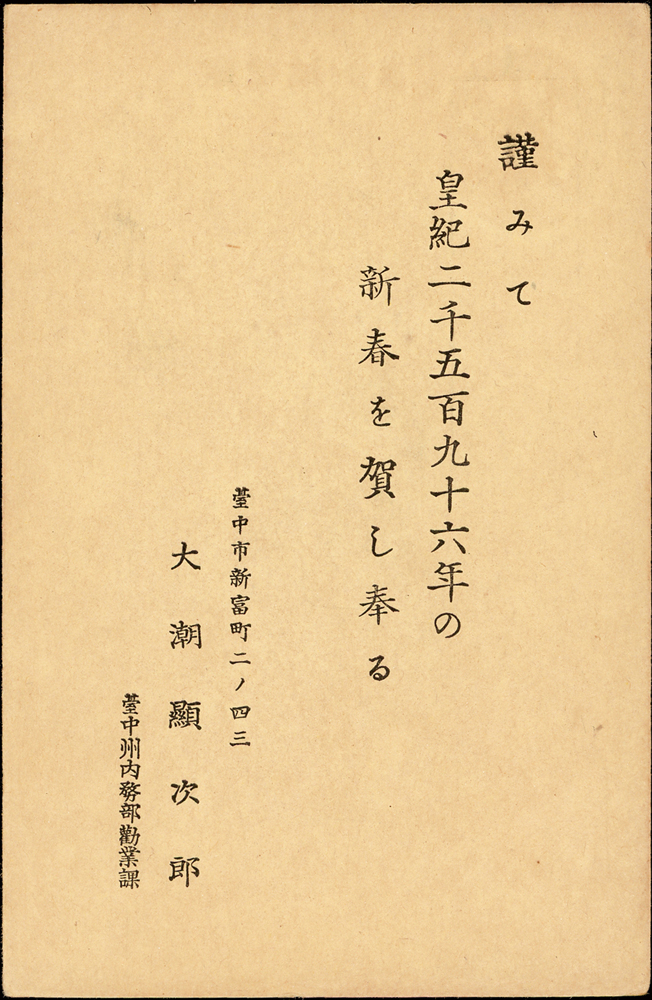 謹みて
皇紀二千五百九十六年の
新春を賀し奉る
臺中市新富町二ノ四三
大潮顯次郎
臺中州内務部勸業課